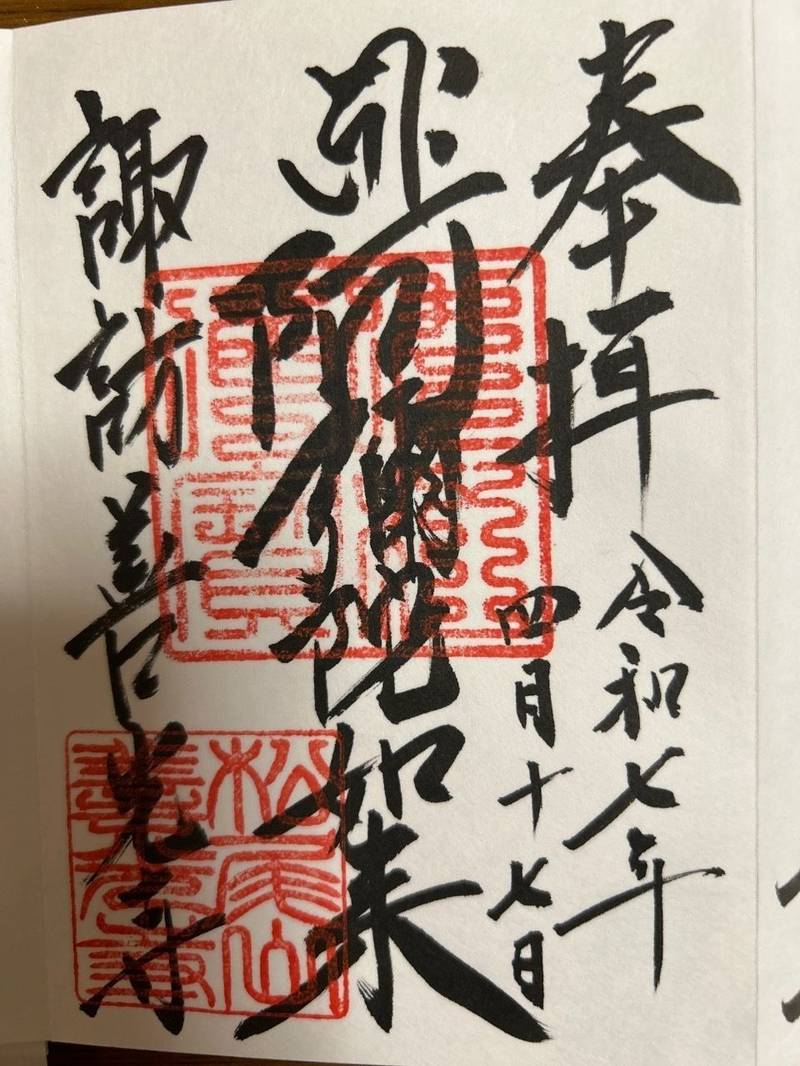 奉拝
令和七年
四月十七日
阿彌陀如来
諏訪善光寺
松尾山
善光寺